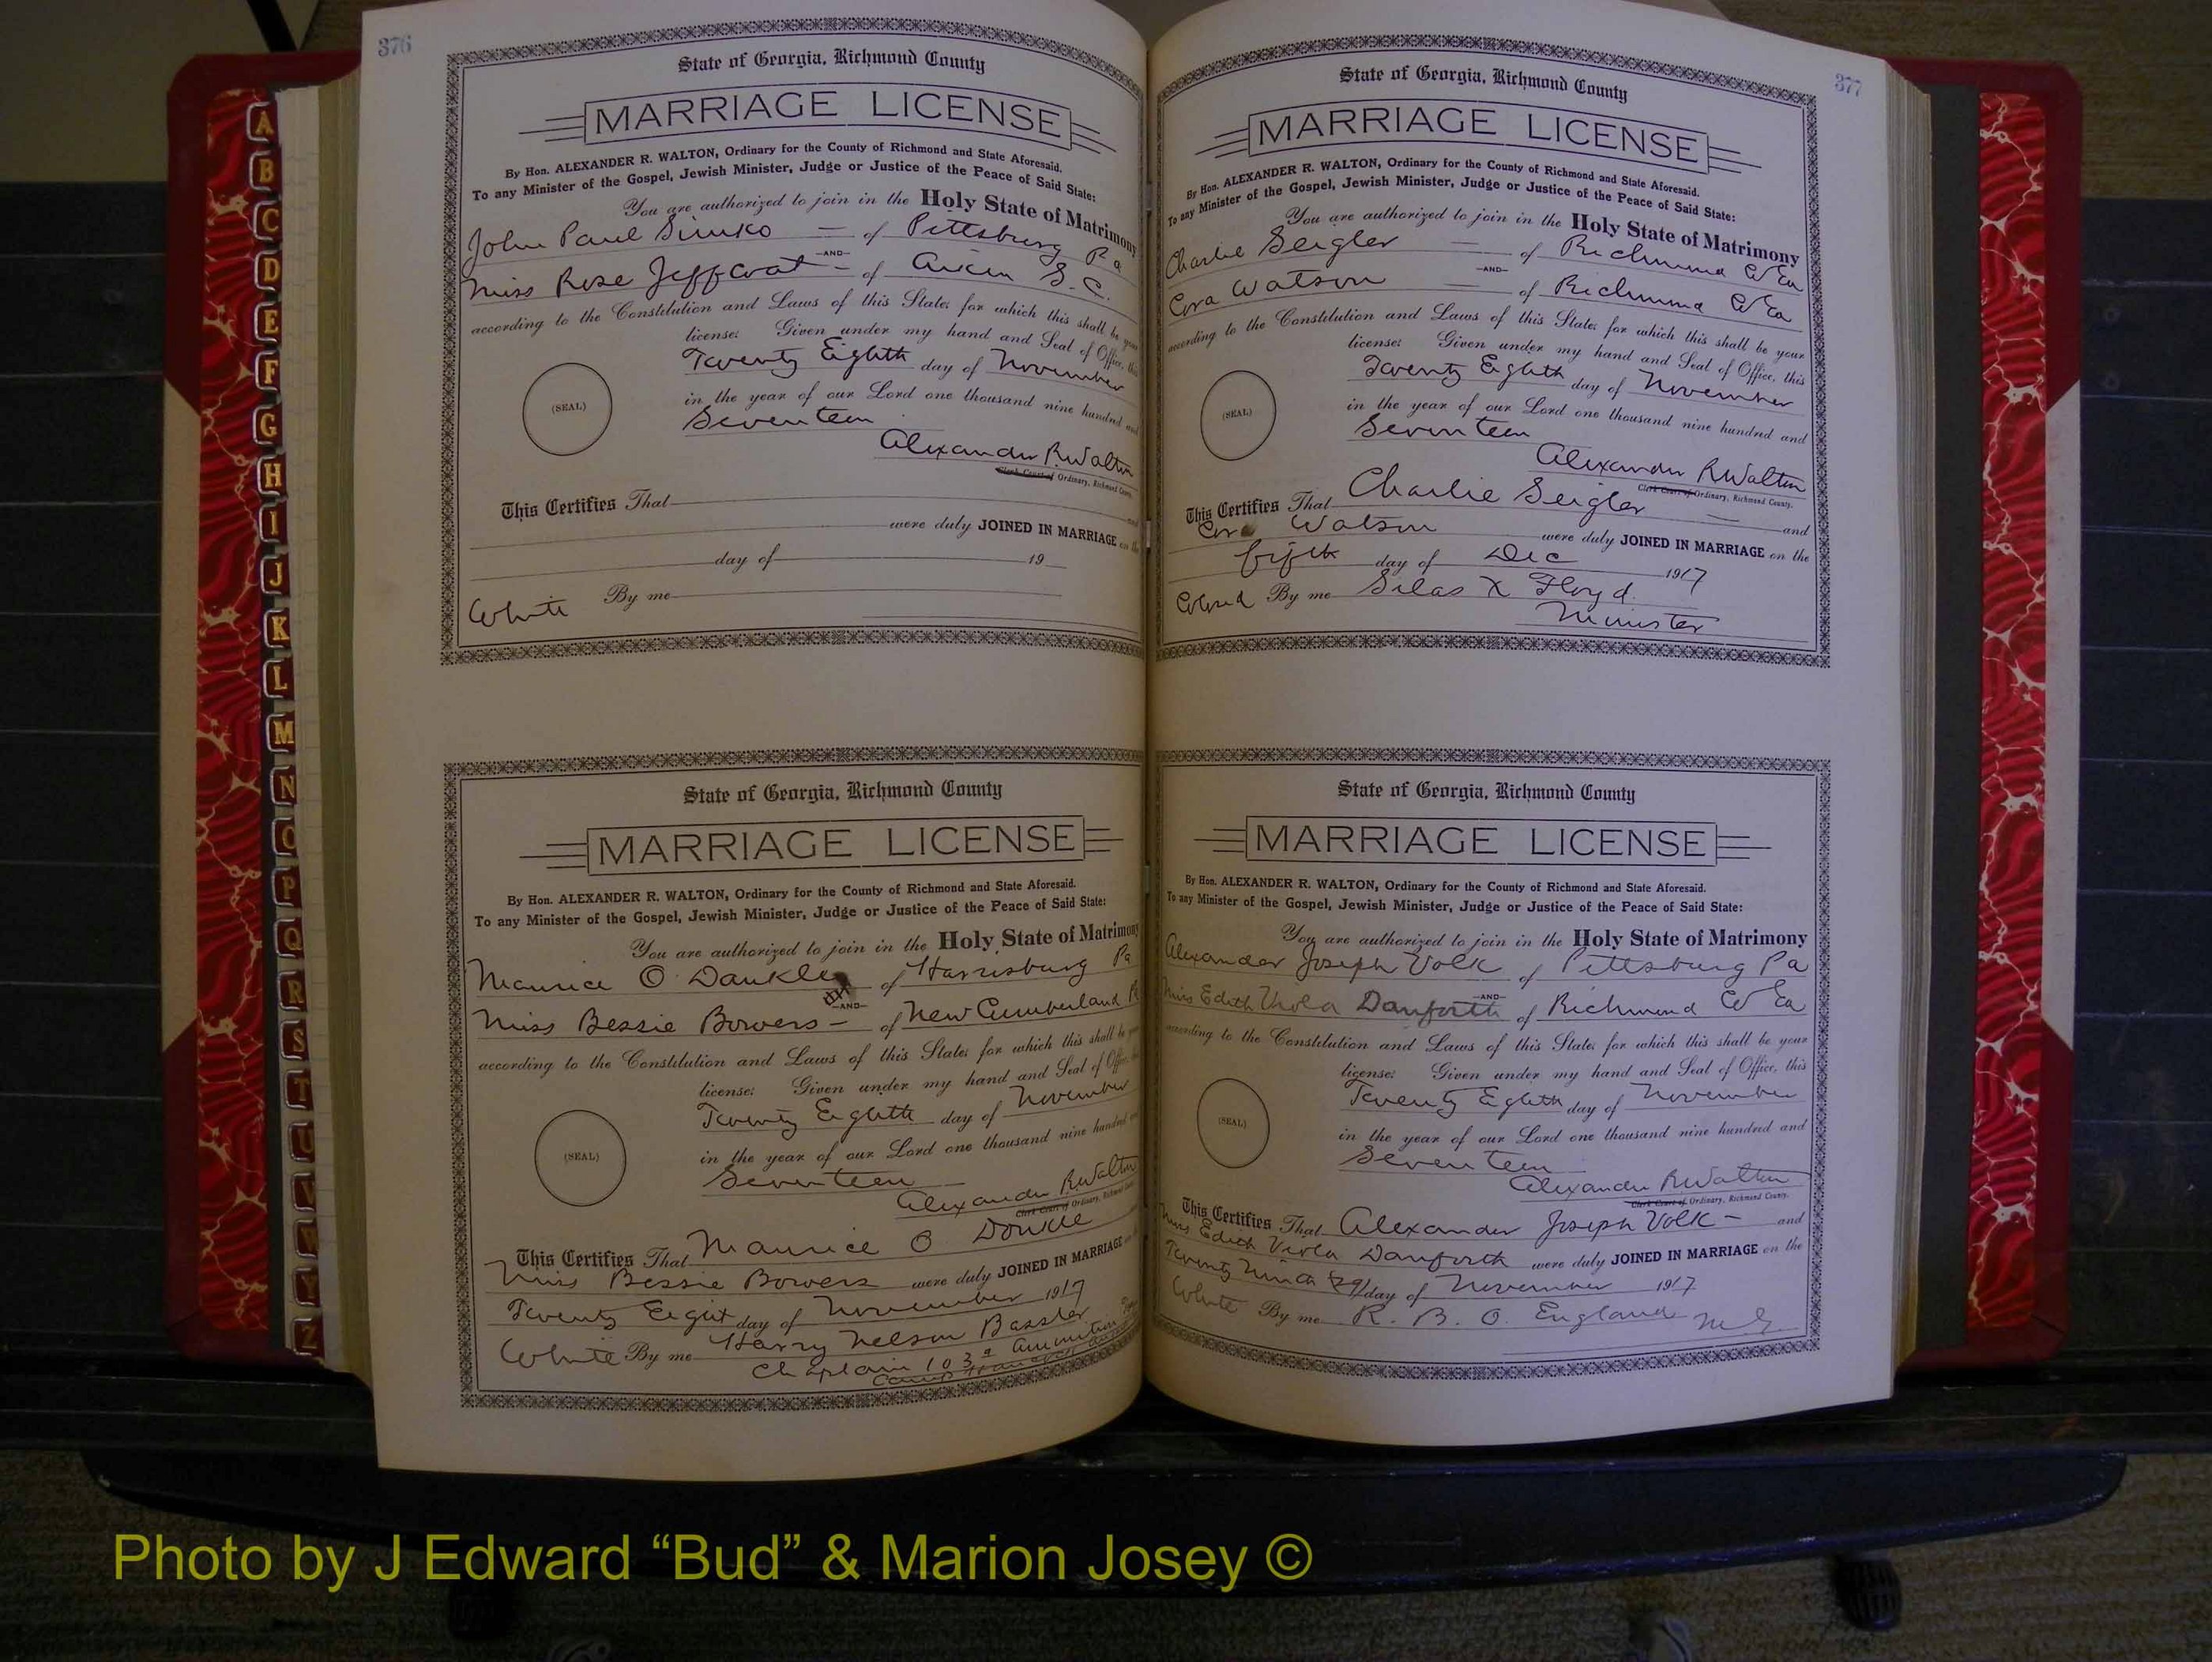 376
State of Georgia, Richmond County
MARRIAGE LICENSE
By Hon. ALEXANDER R. WALTON, Ordinary for the County of Richmond and State Aforesaid.
To any Minister of the Gospel, Jewish Minister, Judge or Justice of the Peace of Said State:
You are authorized to join in the Holy State of Matrimony
John Paul Simko — of Pittsburg Pa
—AND—
Miss Rose Jeffcoat — of Aiken S.C.
according to the Constitution and Laws of this State; for which this shall be your
license: Given under my hand and Seal of Office, this
Twenty Eighth day of November
in the year of our Lord one thousand nine hundred and
Seventeen
(SEAL)
Alexander R Walton
Clerk Court of Ordinary, Richmond County.
This Certifies That
were duly JOINED IN MARRIAGE on the
day of 19
White By me
State of Georgia, Richmond County
MARRIAGE LICENSE
By Hon. ALEXANDER R. WALTON, Ordinary for the County of Richmond and State Aforesaid.
To any Minister of the Gospel, Jewish Minister, Judge or Justice of the Peace of Said State:
You are authorized to join in the Holy State of Matrimony
Maurice O of Harrisburg Pa
—AND—
Miss Bessie Bowers — of New Cumberland
according to the Constitution and Laws of this State; for which this shall be your
license: Given under my hand and Seal of Office,
Twenty Eighth day of November
in the year of our Lord one thousand nine hundred and
Seventeen
(SEAL)
Alexander R Walton
Clerk Court of Ordinary, Richmond County.
This Certifies That Maurice O
Miss Bessie Bowers were duly JOINED IN MARRIAGE
Twenty Eight day of November 1917
White By me Harry Nelson Bassler
Chaplain 103d
Camp Hancock
377
State of Georgia, Richmond County
MARRIAGE LICENSE
By Hon. ALEXANDER R. WALTON, Ordinary for the County of Richmond and State Aforesaid.
To any Minister of the Gospel, Jewish Minister, Judge or Justice of the Peace of Said State:
You are authorized to join in the Holy State of Matrimony
Charlie Seigler — of Richmond Co Ga
—AND—
Cora Watson — of Richmond Co Ga
according to the Constitution and Laws of this State; for which this shall be your
license: Given under my hand and Seal of Office, this
Twenty Eighth day of November
in the year of our Lord one thousand nine hundred and
Seventeen
(SEAL)
Alexander R Walton
Clerk Court of Ordinary, Richmond County.
This Certifies That Charlie Seigler — and
Cora Watson were duly JOINED IN MARRIAGE on the
fifth day of Dec 1917
Colored By me Silas X Floyd
Minister
State of Georgia, Richmond County
MARRIAGE LICENSE
By Hon. ALEXANDER R. WALTON, Ordinary for the County of Richmond and State Aforesaid.
To any Minister of the Gospel, Jewish Minister, Judge or Justice of the Peace of Said State:
You are authorized to join in the Holy State of Matrimony
Alexander Joseph Volk of Pittsburg Pa
—AND—
Miss Edith Viola Danforth of Richmond Co Ga
according to the Constitution and Laws of this State; for which this shall be your
license: Given under my hand and Seal of Office, this
Twenty Eighth day of November
in the year of our Lord one thousand nine hundred and
Seventeen
(SEAL)
Alexander R Walton
Clerk Court of Ordinary, Richmond County.
This Certifies That Alexander Joseph Volk — and
Miss Edith Viola Danforth were duly JOINED IN MARRIAGE on the
Twenty Ninth (29) day of November 1917
White By me R. B. O. England M.G.
A
B
C
D
E
F
G
H
I
J
K
L
M
N
O
P
Q
R
S
T
U
V
W
Y
Z
Photo by J Edward “Bud” & Marion Josey ©